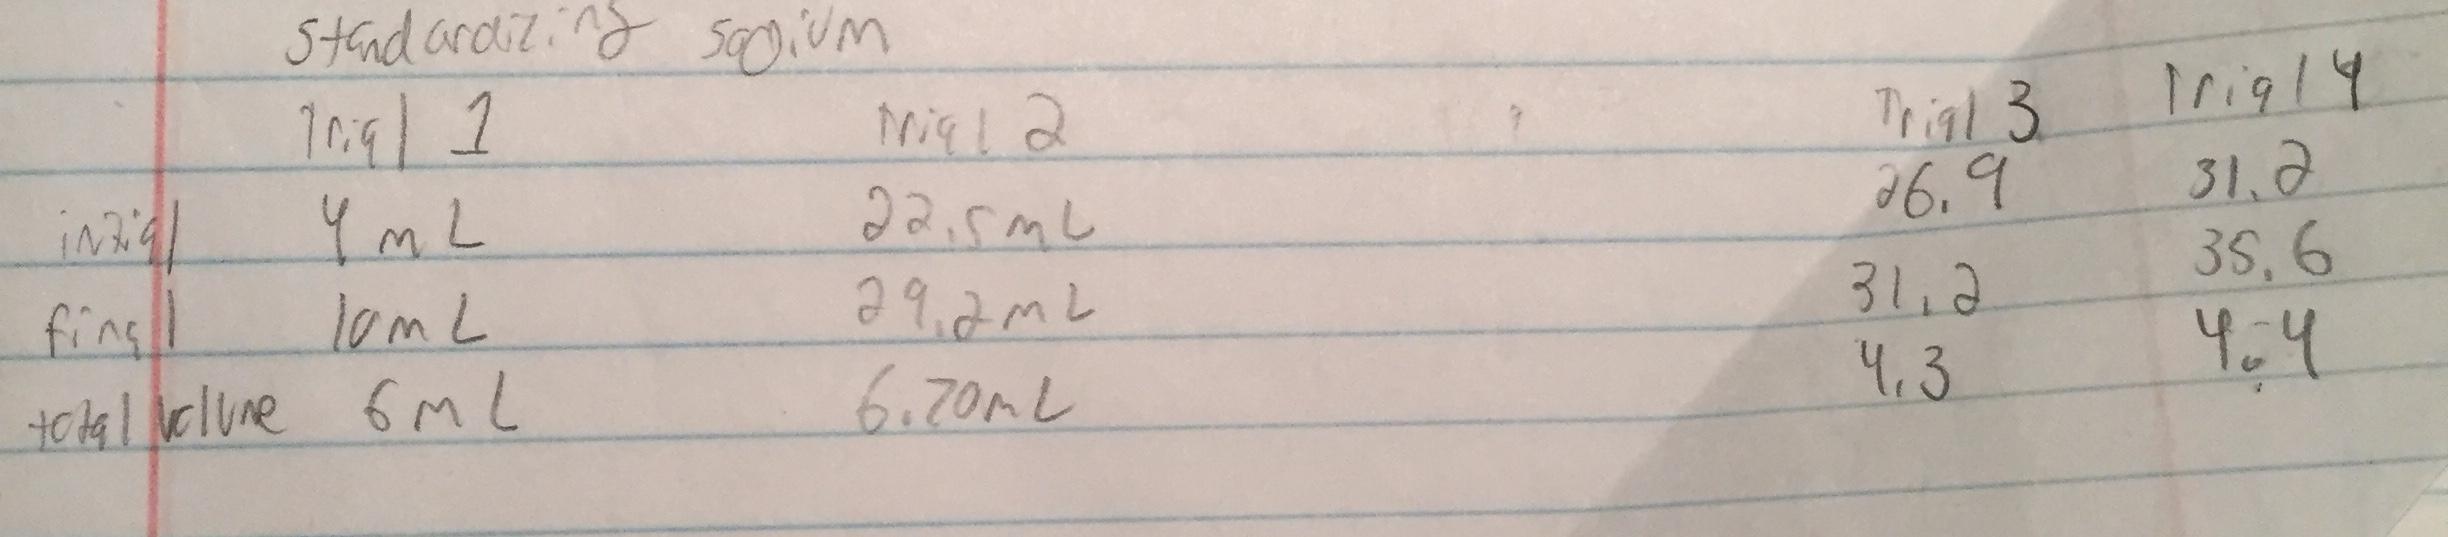 standardizing sodium
Trial 1 Trial 2 Trial 3 Trial 4
intial 4 mL 22.5 mL 26.9 31.2
final 10 mL 29.2 mL 31.2 35.6
total volume 6 mL 6.70 mL 4.3 4.4